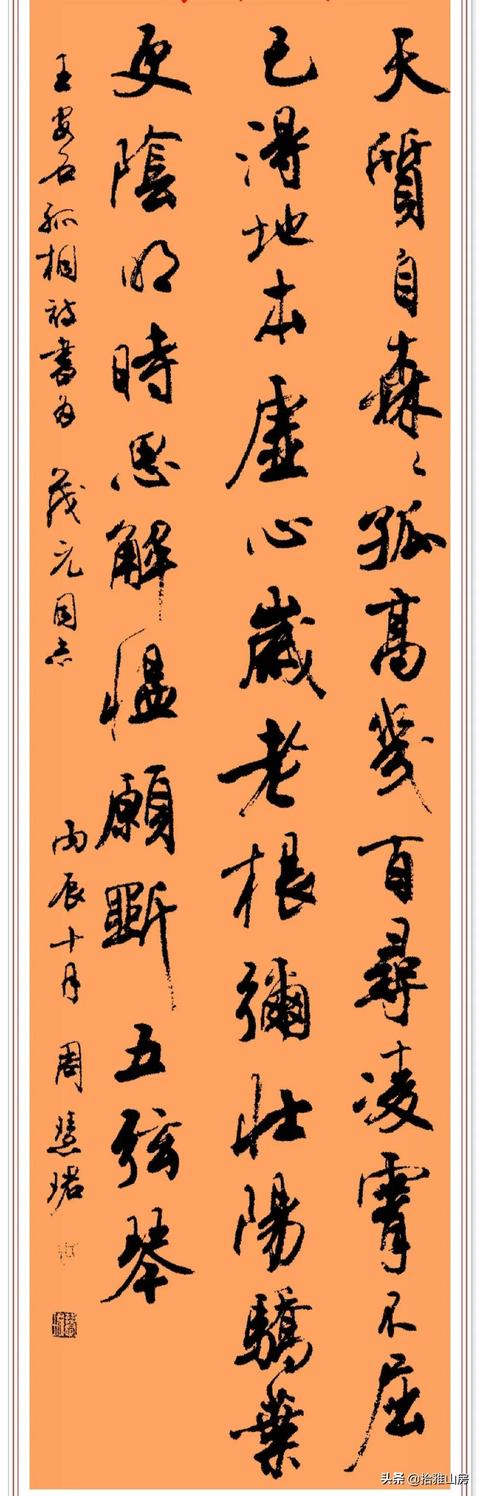 天質自森々孤高幾百尋凌霄不屈
已得地本虛心歲老根彌壯陽驕葉
更陰明時思解慍願斲五弦琴
王安石孤桐詩書為 茂元同志 丙辰十月 周慧珺
头条 @拾雅山房